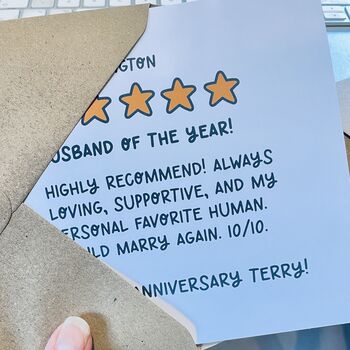 NGTON
USBAND OF THE YEAR!
HIGHLY RECOMMEND! ALWAYS
LOVING, SUPPORTIVE, AND MY
ERSONAL FAVORITE HUMAN.
ULD MARRY AGAIN. 10/10.
NNIVERSARY TERRY!